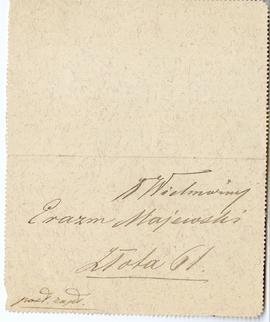 W Wielmożny
Erazm Majewski
Złota 61.